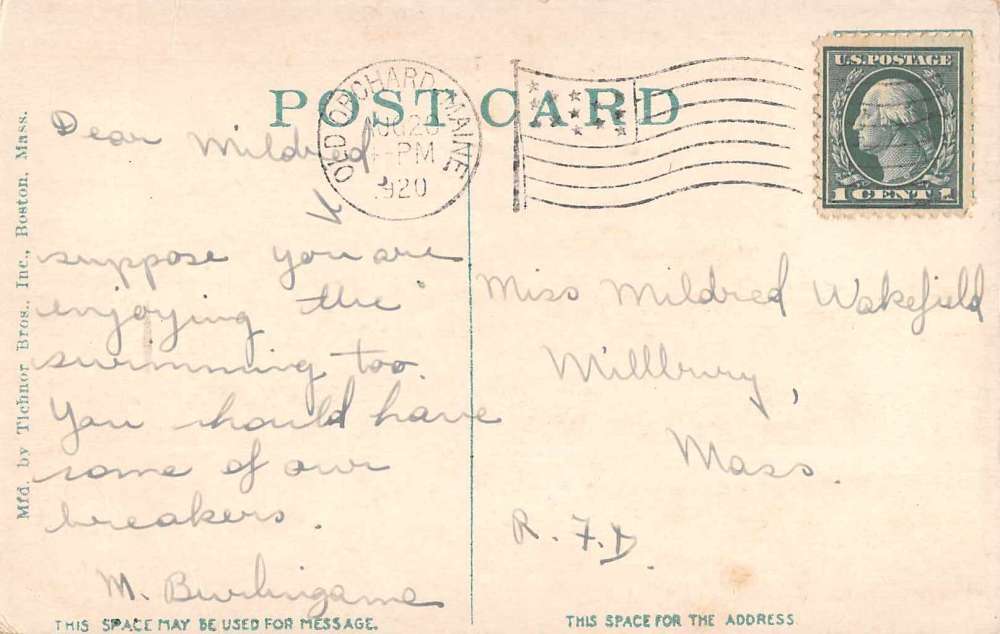 POST CARD
OLD ORCHARD, MAINE
AUG 20
4-PM
1920
U.S. POSTAGE
1 CENT 1
Mfd. by Tichnor Bros., Inc., Boston, Mass.
Dear Mildred
I
suppose you are
enjoying the
swimming too.
You should have
some of our
breakers.
M. Burlingame
Miss Mildred Wakefield
Millbury,
Mass.
R. F. D.
THIS SPACE MAY BE USED FOR MESSAGE.
THIS SPACE FOR THE ADDRESS